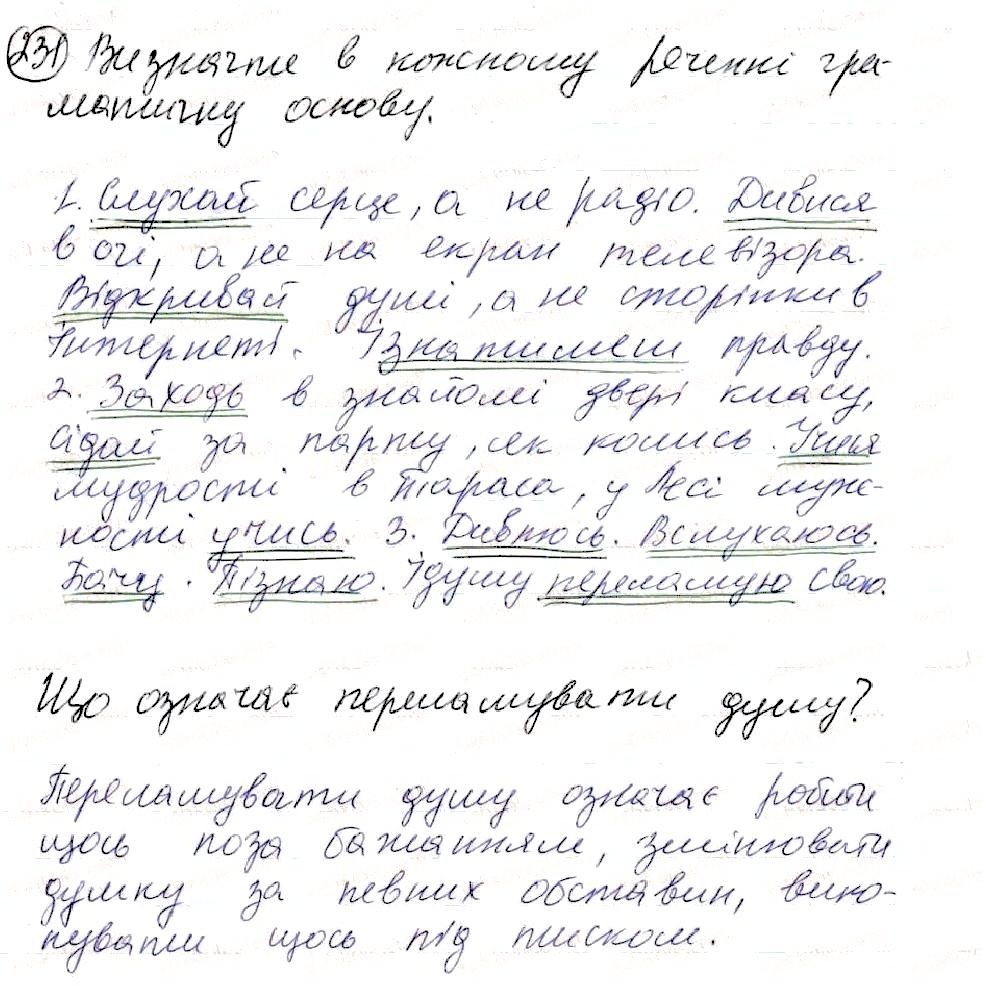 231 Визначте в кожному реченні гра-
матичну основу.
1. Слухай серце, а не радіо. Дивися
в очі, а не на екран телевізора.
Відкривай душі, а не сторінки в
Інтернеті. І знатимеш правду.
2. Заходь в знайомі двері класу,
сідай за парту, як колись. Учися
мудрості в Тараса, у Лесі муж-
ності учись. 3. Дивлюсь. Вслухаюсь.
Бачу. Пізнаю. І душу переламую свою.
Що означає переламувати душу?
Переламувати душу означає робити
щось поза бажанням, змінювати
думку за певних обставин, вико-
нувати щось під тиском.